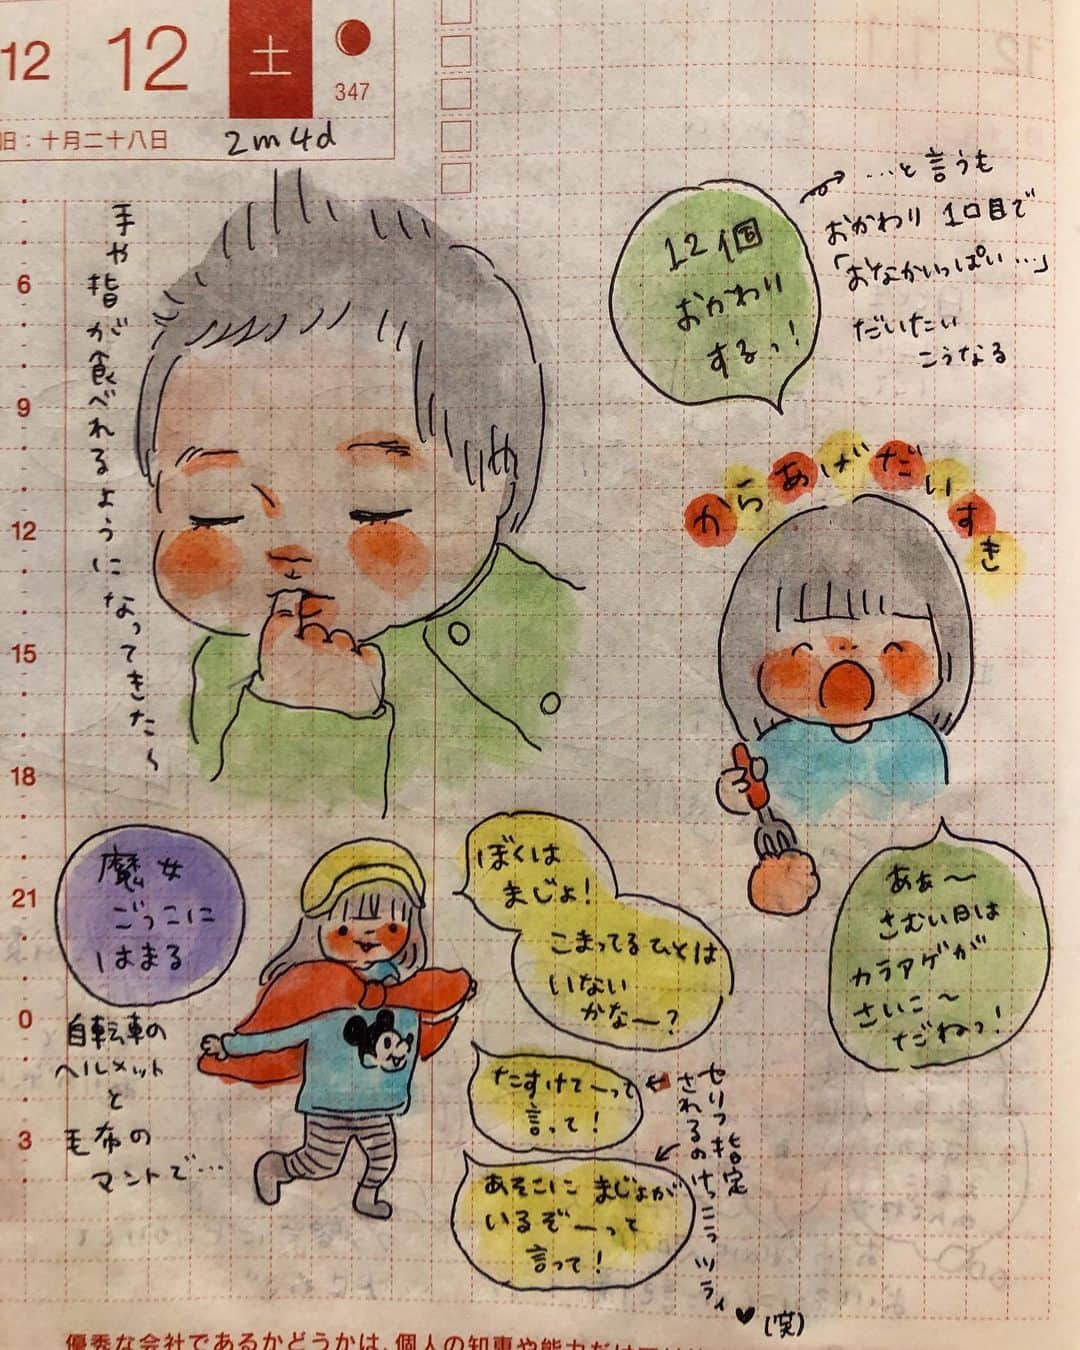 12
12
土
347
旧：十月二十八日
2m4d
手や指が食べれるようになってきた〜
12個
おかわり
するっ！
…と言うも
おかわり 1口目で
「おなかいっぱい…」
だいたい
こうなる
からあげだいすき
あぁ〜
さむい日は
カラアゲが
さいこ〜
だねっ！
魔女
ごっこに
はまる
自転車の
ヘルメット
と
毛布の
マントで…
ぼくは
まじょ！
こまってるひとは
いない
かなー？
たすけてーって
言って！
あそこに まじょが
いるぞーって
言って！
セリフ指定
されるのけっこうツラィ
♥(笑)
6
9
12
15
18
21
0
3
優秀な会社であるかどうかは、個人の知恵や能力だけ